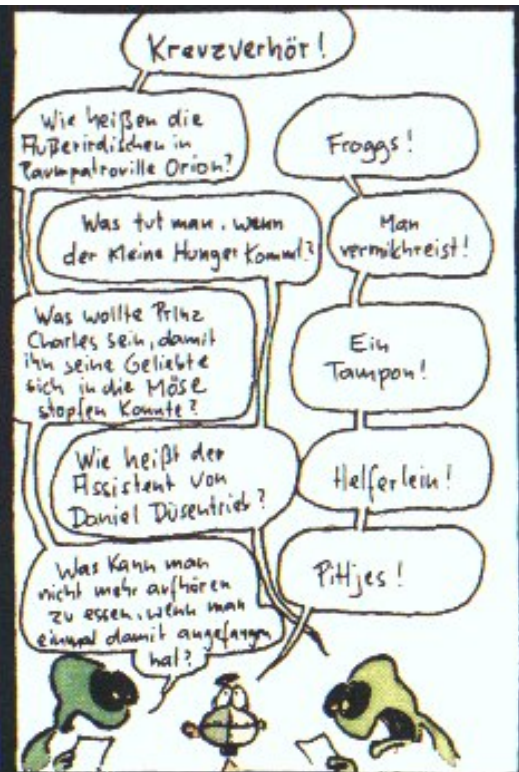 Kreuzverhör!
Wie heißen die
Außerirdischen in
Raumpatrouille Orion?
Froggs!
Was tut man, wenn
der kleine Hunger kommt?
Man
vermilchreist!
Was wollte Prinz
Charles sein, damit
ihn seine Geliebte
sich in die Möse
stopfen konnte?
Ein
Tampon!
Wie heißt der
Assistent von
Daniel Düsentrieb?
Helferlein!
Was kann man
nicht mehr aufhören
zu essen, wenn man
einmal damit angefangen
hat?
Pittjes!